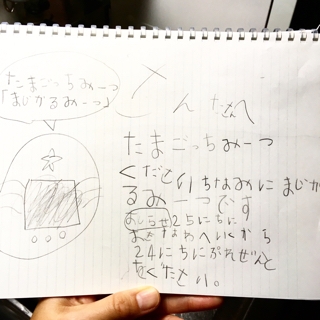 たまごっちみーつ
「まじかるみーつ」
さんたさんへ
たまごっちみーつ
くださいちなみにまじか
るみーつです
おしらせ25にちに
へいくから
24にちにぷれぜんと
ください。